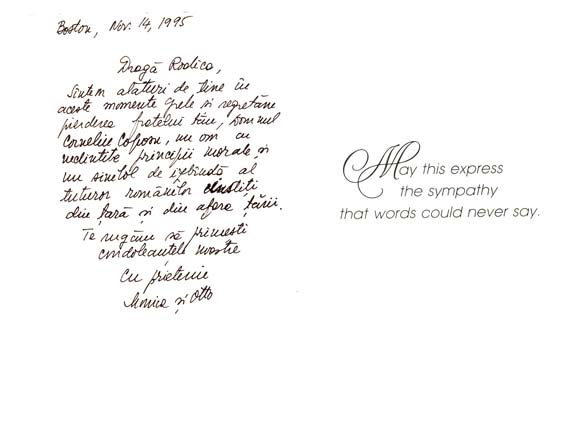 Boston, Nov. 14, 1995
Dragă Rodica,
Sîntem alături de tine în
aceste momente grele si regretăm
pierderea fratelui tău, Domnul
Corneliu Coposu, un om cu
nedintite principii morale și
un simbol de izbîndă al
tuturor românilor cinstiți
din țară și din afara țării.
Te rugăm să primesti
condoleantele noastre
Cu prietenie
Monica și Otto
May this express
the sympathy
that words could never say.